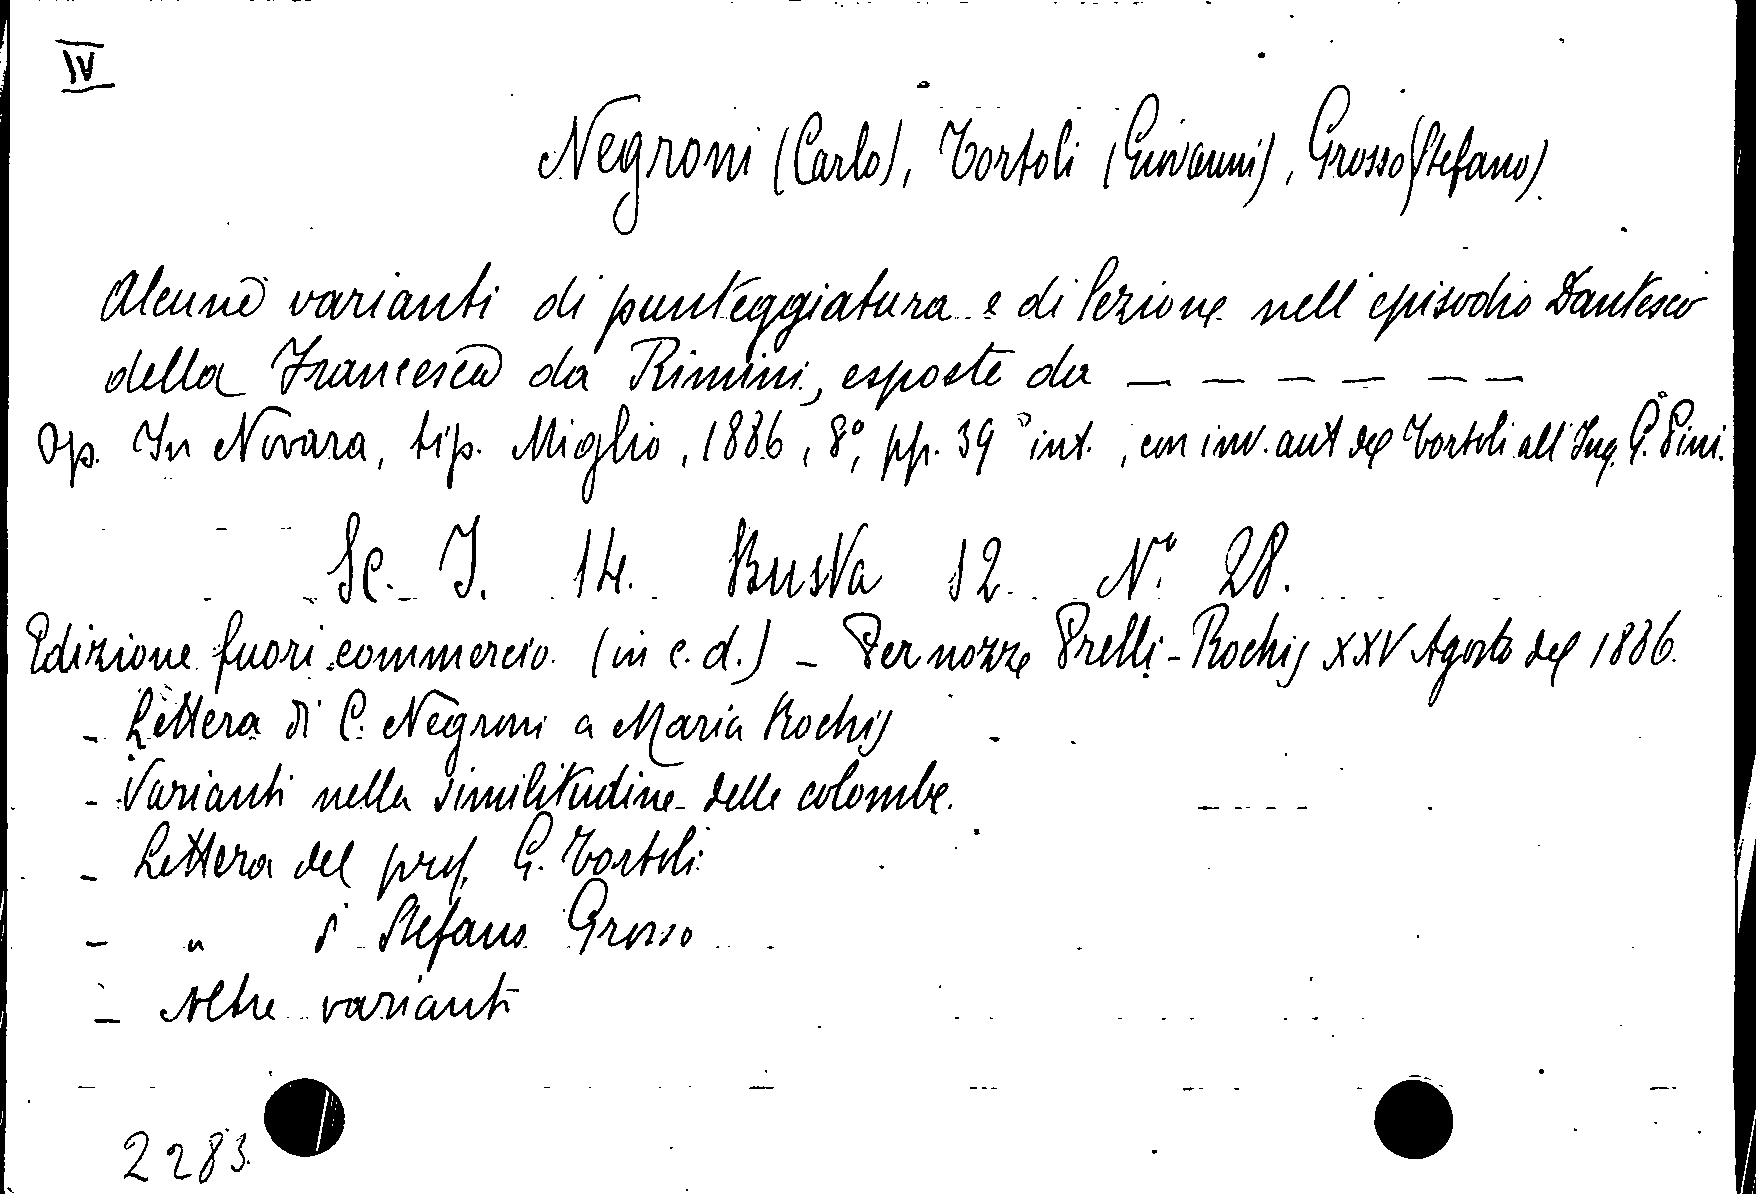 IV
Negroni (Carlo), Tortoli (Giovanni), Grosso (Stefano).
Alcune varianti di punteggiatura e di lezione nell'episodio Dantesco
della Francesca da Rimini, esposte da — — — — — —
Op. In Novara, tip. Miglio, 1886, 8°, pp. 39 int., con inv. aut del Tortoli all'Ing. G. Pini.
Sc. I. 14. Busta 12. N.° 28.
Edizione fuori commercio. (in c. d.) – Per nozze Prelli-Rochis XXV Agosto del 1886.
– Lettera di C. Negroni a Maria Rochis
– Varianti nella similitudine delle colombe.
– Lettera del prof. G. Tortoli.
– " di Stefano Grosso
– Altre varianti
2283.